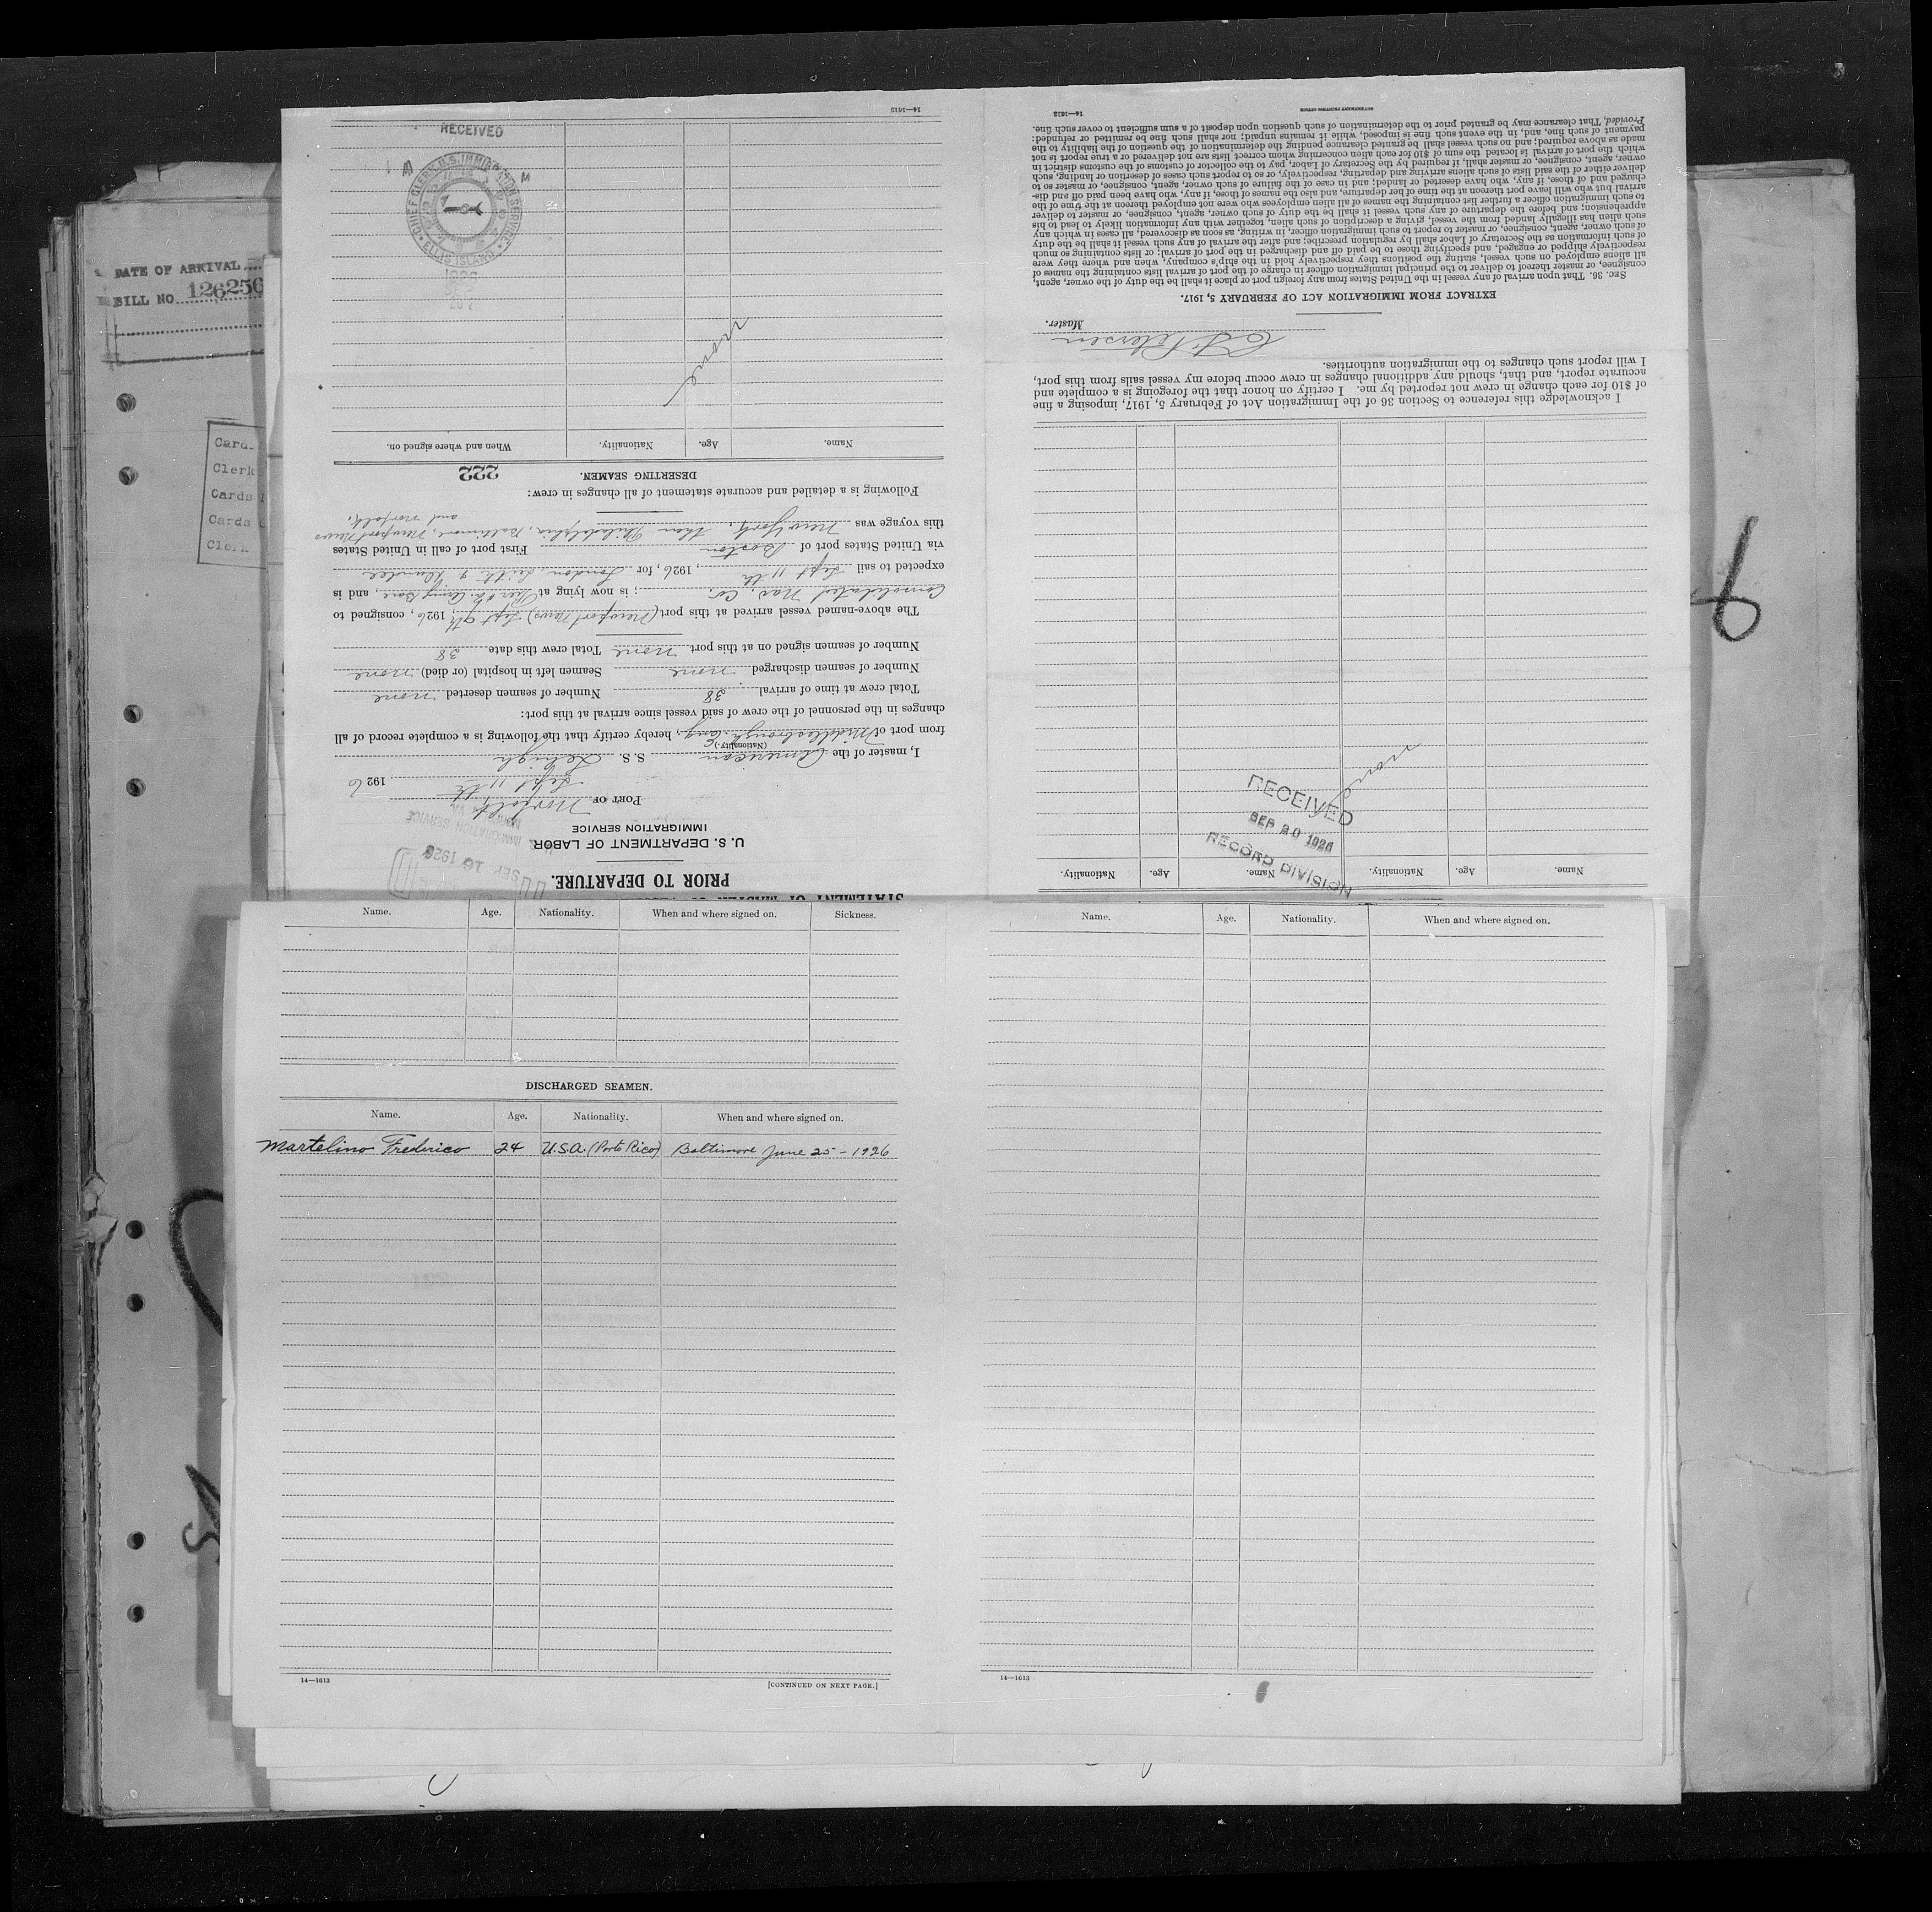 DATE OF ARRIVAL
BILL NO. 126256
Card
Clerk
Cards
Cards
Clerk
6
STATEMENT OF MASTER OF
PRIOR TO DEPARTURE.
U. S. DEPARTMENT OF LABOR
IMMIGRATION SERVICE
SEP 16 1926
IMMIGRATION SERVICE
PORT OF Norfolk, Va
Sept 11th 1926
I, master of the American S. S. Lehigh
(Nationality)
from port of Middlesbrough, Eng, hereby certify that the following is a complete record of all
changes in the personnel of the crew of said vessel since arrival at this port:
Total crew at time of arrival 38 Number of seamen deserted none
Number of seamen discharged none Seamen left in hospital (or died) none
Number of seamen signed on at this port none Total crew this date 38
The above-named vessel arrived at this port (Newport News) Sept 9th, 1926, consigned to
Consolidated Nav. Co. ; is now lying at Army Base, and is
expected to sail Sept 11th, 1926, for London, Leith & Dundee
via United States port of Boston First port of call in United States
this voyage was New York, then Philadelphia, Baltimore, Newport News
and Norfolk.
Following is a detailed and accurate statement of all changes in crew:
DESERTING SEAMEN. 222
Name. Age. Nationality. When and where signed on.
none
CHIEF CLERK, U.S. IMMIGRATION SERVICE
ELLIS ISLAND
1926
RECEIVED
A M
14—1613
Name. Age. Nationality. Name. Age. Nationality.
RECEIVED
SEP 20 1926
RECORD DIVISION
none
I acknowledge this reference to Section 36 of the Immigration Act of February 5, 1917, imposing a fine
of $10 for each change in crew not reported by me. I certify on honor that the foregoing is a complete and
accurate report, and that, should any additional changes in crew occur before my vessel sails from this port,
I will report such changes to the immigration authorities.
Petersen
Master.
EXTRACT FROM IMMIGRATION ACT OF FEBRUARY 5, 1917.
SEC. 36. That upon arrival of any vessel in the United States from any foreign port or place it shall be the duty of the owner, agent,
consignee, or master thereof to deliver to the principal immigration officer in charge of the port of arrival lists containing the names of
all aliens employed on such vessel, stating the positions they respectively hold in the ship's company, when and where they were
respectively shipped or engaged, and specifying those to be paid off and discharged in the port of arrival; or lists containing so much
of such information as the Secretary of Labor shall by regulation prescribe; and after the arrival of any such vessel it shall be the duty
of such owner, agent, consignee, or master to report to such immigration officer, in writing, as soon as discovered, all cases in which any
such alien has illegally landed from the vessel, giving a description of such alien, together with any information likely to lead to his
apprehension; and before the departure of any such vessel it shall be the duty of such owner, agent, consignee, or master to deliver
to such immigration officer a further list containing the names of all alien employees who were not employed thereon at the time of the
arrival but who will leave port thereon at the time of her departure, and also the names of those, if any, who have been paid off and dis-
charged and of those, if any, who have deserted or landed; and in case of the failure of such owner, agent, consignee, or master so to
deliver either of the said lists of such aliens arriving and departing, respectively, or so to report such cases of desertion or landing, such
owner, agent, consignee, or master shall, if required by the Secretary of Labor, pay to the collector of customs of the customs district in
which the port of arrival is located the sum of $10 for each alien concerning whom correct lists are not delivered or a true report is not
made as above required; and no such vessel shall be granted clearance pending the determination of the question of the liability to the
payment of such fine, and, in the event such fine is imposed, while it remains unpaid; nor shall such fine be remitted or refunded:
Provided, That clearance may be granted prior to the determination of such question upon deposit of a sum sufficient to cover such fine.
14—1613 GOVERNMENT PRINTING OFFICE
Name. Age. Nationality. When and where signed on. Sickness.
DISCHARGED SEAMEN.
Name. Age. Nationality. When and where signed on.
Martelino Frederico 24 U.S.A. (Porto Rico) Baltimore June 25 - 1926
14—1613 [CONTINUED ON NEXT PAGE.]
Name. Age. Nationality. When and where signed on.
14—1613